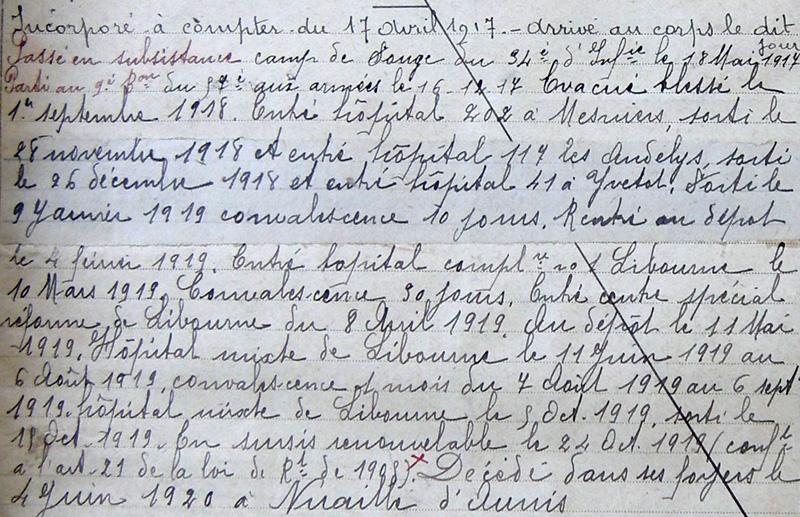 Incorporé à compter du 17 Avril 1917. - arrivé au corps le dit jour
Passé en subsistance camp de Souge du 34e d'Infie le 18 Mai 1917
Parti au 9e Bon du 57e aux armées le 16-12-17 Evacué blessé le
1er septembre 1918. Entré hôpital 202 à Mesnières, sorti le
28 novembre 1918 et entré hôpital 117 les Andelys, sorti
le 26 décembre 1918 et entré hôpital 41 à Yvetot. Sorti le
9 Janvier 1919 convalescence 10 jours. Rentré au dépôt
le 4 février 1919. Entré hopital complre no 1 Libourne le
10 Mars 1919. Convalescence 30 jours. Entré centre spécial
réforme de Libourne du 8 Avril 1919. Au dépôt le 11 Mai
1919. Hôpital mixte de Libourne le 11 Juin 1919 au
6 Août 1919, convalescence 1 mois du 7 Août 1919 au 6 sept
1919. hôpital mixte de Libourne le 9 Oct. 1919, sorti le
Oct. 1919. En sursis renouvelable le 24 Oct. 1919 (conft
à l'art. 21 de la loi de Rt de 1905). Décédé dans ses foyers le
4 Juin 1920 à Nuaillé d'Aunis